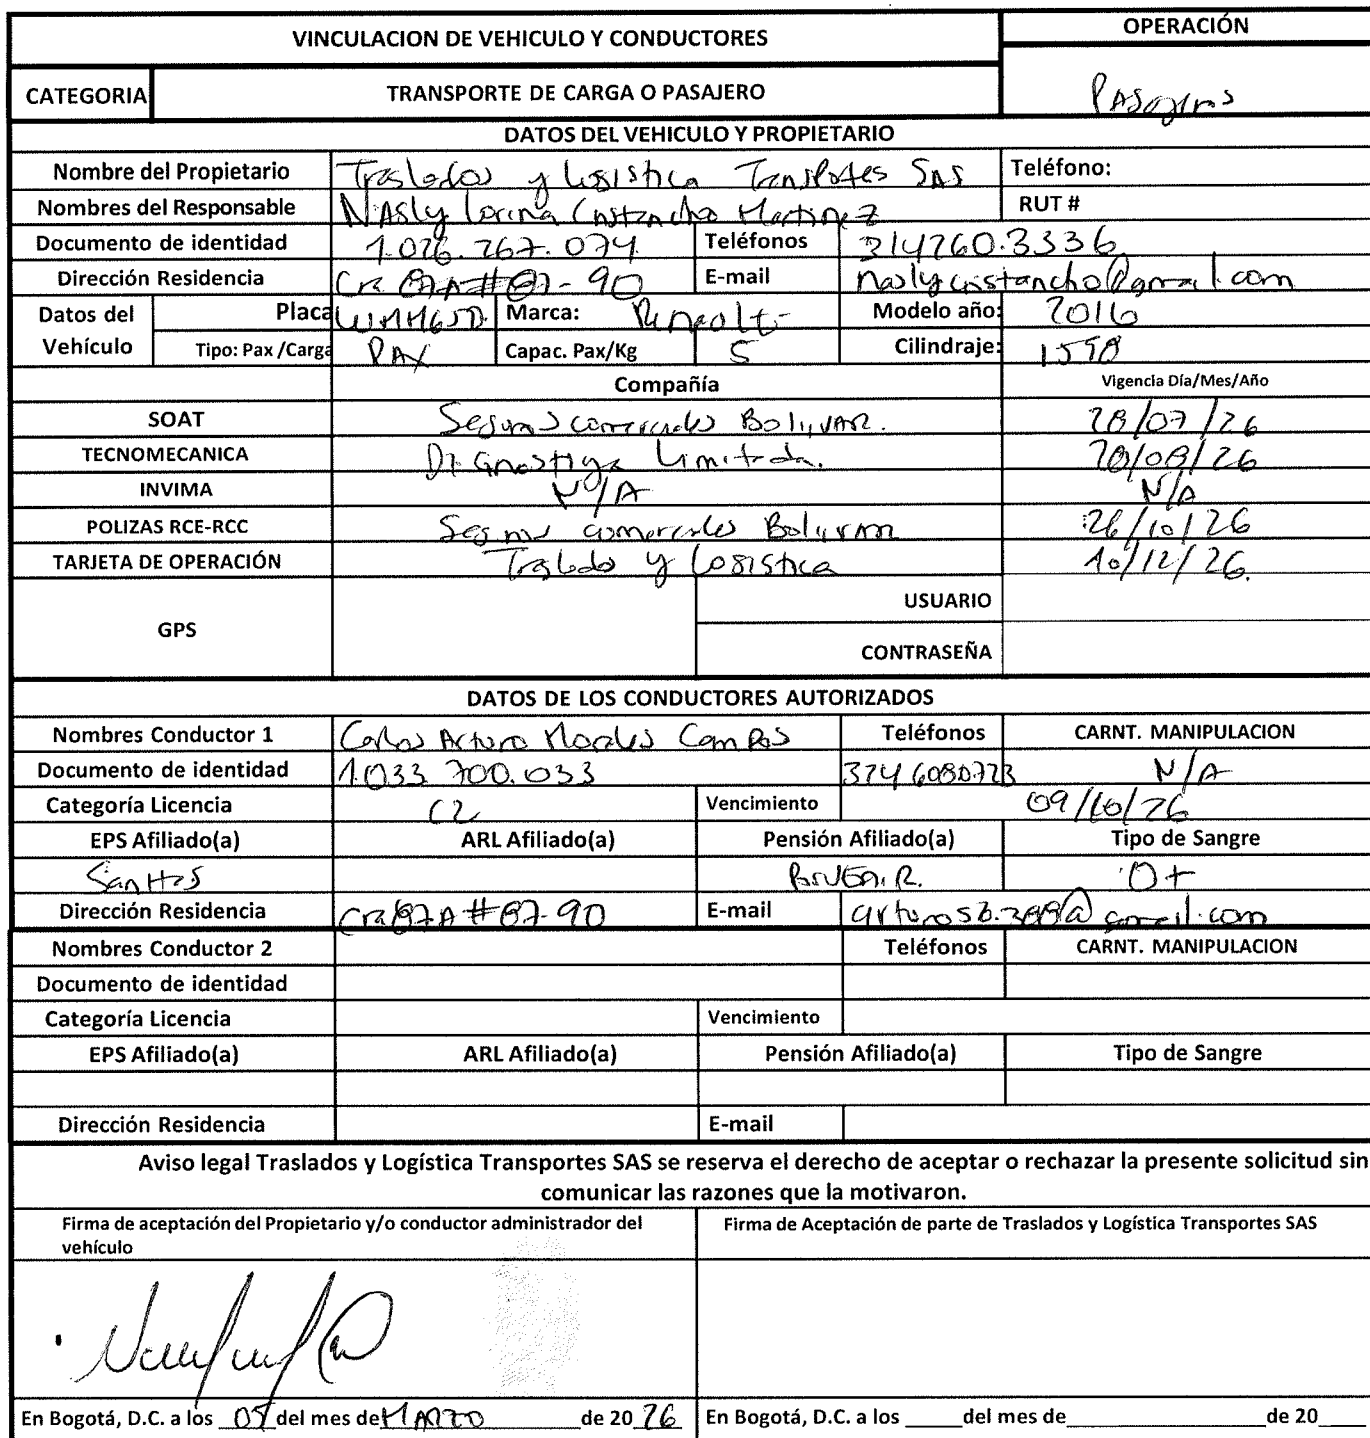 VINCULACION DE VEHICULO Y CONDUCTORES
OPERACIÓN
CATEGORIA TRANSPORTE DE CARGA O PASAJERO
Pasajeros
DATOS DEL VEHICULO Y PROPIETARIO
Nombre del Propietario Traslados y Logistica Transportes SAS Teléfono:
Nombres del Responsable Nasly Lorena Castancho Martinez RUT #
Documento de identidad 1.026.267.074 Teléfonos 3147603336
Dirección Residencia Cra 87A #87-90 E-mail naslycastancho@gmail.com
Datos del Vehículo Placa Marca: Renault Modelo año: 2016
Tipo: Pax /Carga PAX Capac. Pax/Kg 5 Cilindraje: 1598
Compañía Vigencia Día/Mes/Año
SOAT Seguros comerciales Bolivar. 28/07/26
TECNOMECANICA Limitada. 20/08/26
INVIMA N/A N/A
POLIZAS RCE-RCC Seguros comerciales Bolivar 26/10/26
TARJETA DE OPERACIÓN Traslado y Logistica 10/12/26.
GPS USUARIO
CONTRASEÑA
DATOS DE LOS CONDUCTORES AUTORIZADOS
Nombres Conductor 1 Carlos Arturo Morales Campos Teléfonos CARNT. MANIPULACION
Documento de identidad 1.033.700.033 N/A
Categoría Licencia C2 Vencimiento 09/10/26
EPS Afiliado(a) ARL Afiliado(a) Pensión Afiliado(a) Tipo de Sangre
Sanitas O+
Dirección Residencia Cra 87A #87-90 E-mail
Nombres Conductor 2 Teléfonos CARNT. MANIPULACION
Documento de identidad
Categoría Licencia Vencimiento
EPS Afiliado(a) ARL Afiliado(a) Pensión Afiliado(a) Tipo de Sangre
Dirección Residencia E-mail
Aviso legal Traslados y Logística Transportes SAS se reserva el derecho de aceptar o rechazar la presente solicitud sin
comunicar las razones que la motivaron.
Firma de aceptación del Propietario y/o conductor administrador del
vehículo
Firma de Aceptación de parte de Traslados y Logística Transportes SAS
En Bogotá, D.C. a los del mes de MARZO de 20 26
En Bogotá, D.C. a los _____ del mes de _____ de 20 ____